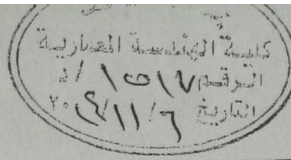 كلية الهندسة المعمارية
الرقم ١٥١٧ / د
التاريخ ٦ / ١١ / ٢٠٢٤